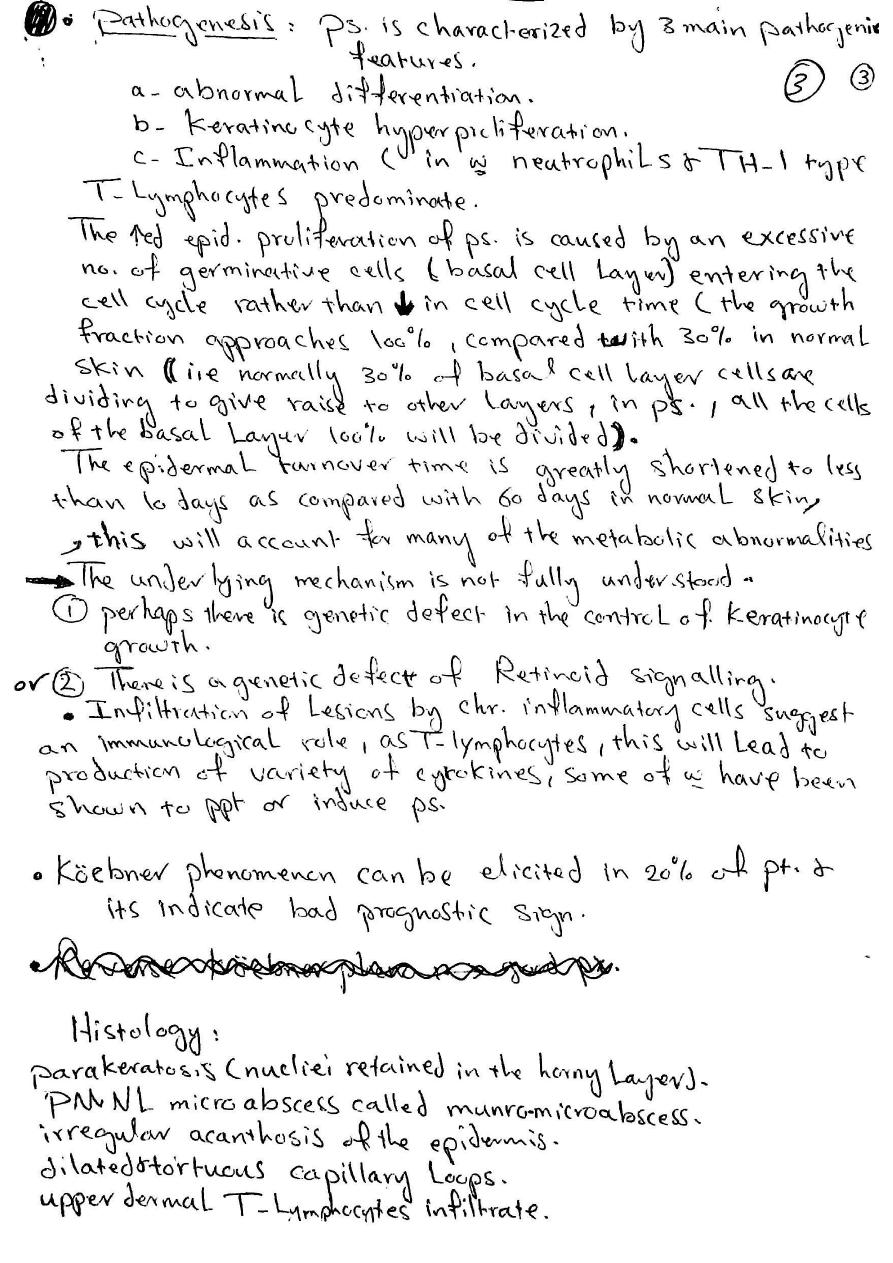 • Pathogenesis : ps. is characterized by 3 main pathogenic
features.
③ ③
a- abnormal differentiation.
b- Keratinocyte hyperproliferation.
c- Inflammation (in w̲ neutrophils & TH-1 type
T-Lymphocytes predominate.
The ↑ed epid. proliferation of ps. is caused by an excessive
no. of germinative cells (basal cell Layer) entering the
cell cycle rather than ↓ in cell cycle time (the growth
fraction approaches 100%, compared with 30% in normal
skin (i,e normally 30% of basal cell layer cells are
dividing to give raise to other Layers, in ps., all the cells
of the basal Layer 100% will be divided).
The epidermal turnover time is greatly shortened to less
than 10 days as compared with 60 days in normal skin,
, this will account for many of the metabolic abnormalities
→ The underlying mechanism is not fully understood.
① perhaps there is genetic defect in the control of Keratinocyte
growth.
or ② There is a genetic defect of Retinoid signalling.
• Infiltration of Lesions by chr. inflammatory cells suggest
an immunological role, as T-lymphocytes, this will Lead to
production of variety of cytokines, some of w̲ have been
shown to ppt or induce ps.
• Köebner phenomenon can be elicited in 20% of pt. &
its indicate bad prognostic sign.
Histology :
parakeratosis (nucliei retained in the horny Layer).
PMNL micro abscess called munro-microabscess.
irregular acanthosis of the epidermis.
dilated & tortuous capillary Loops.
upper dermal T-Lymphocytes infiltrate.